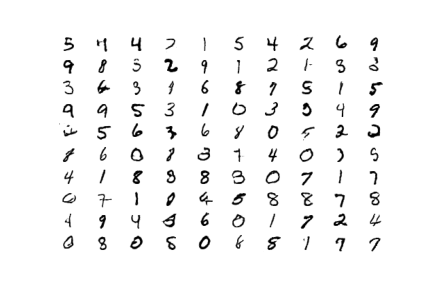 5 4 4 7 1 5 4 2 6 9
9 8 5 2 9 1 2 1 3 3
3 6 3 1 6 8 7 5 1 5
9 9 5 3 1 0 3 3 4 9
5 6 3 6 8 0 5 2 2
8 6 0 8 3 7 4 0 3 5
4 1 8 8 8 3 0 7 1 7
6 7 1 0 4 5 8 8 7 8
4 9 4 3 6 0 1 7 2 4
0 8 0 5 0 8 8 1 7 7